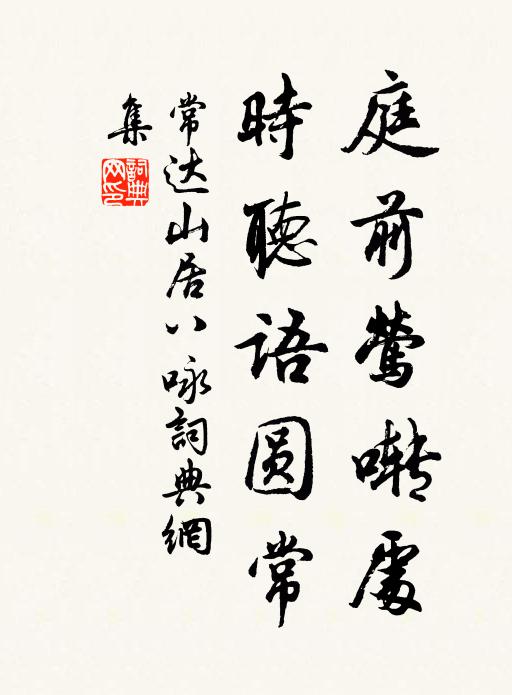 庭前鶯囀處
時聽語圆常
常达山居八咏詞典網
集
詞典网印